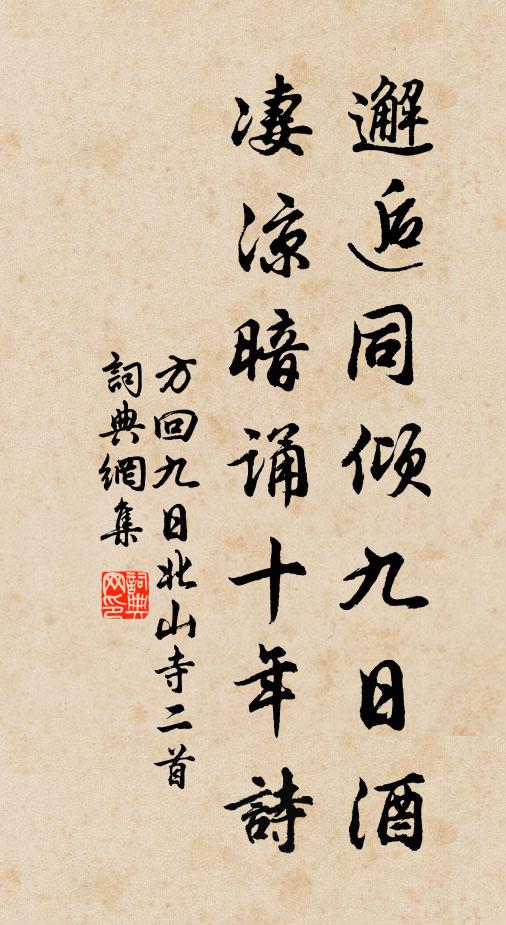 邂逅同倾九日酒
凄凉暗诵十年詩
方回九日北山寺二首
詞典網集
詞典网印